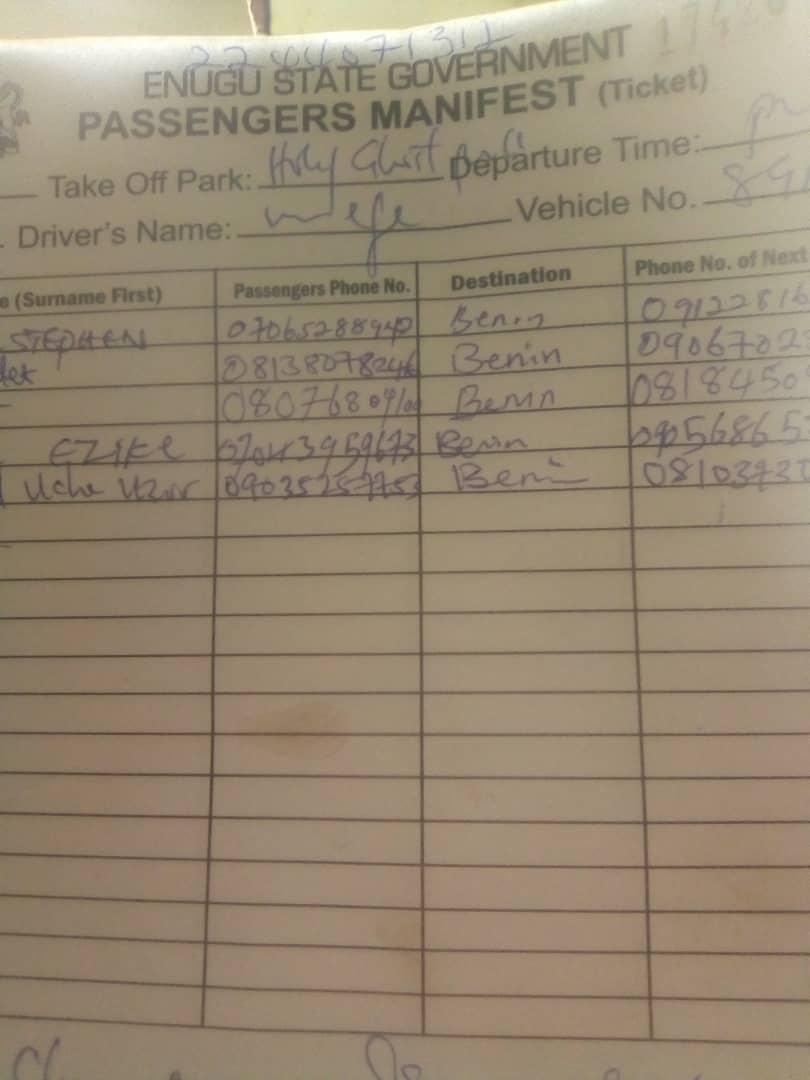 2244071312
ENUGU STATE GOVERNMENT
PASSENGERS MANIFEST (Ticket)
Take Off Park: Holy Ghost Park Departure Time:
Driver's Name: Vehicle No. 89
e (Surname First) Passengers Phone No. Destination Phone No. of Next
STEPHEN 07065288940 Benin 09122816
08138078246 Benin 0906702
080768 Benin 08184509
EZIKE 07043959673 Benin 09056865
Uche 09035257753 Benin 0810373